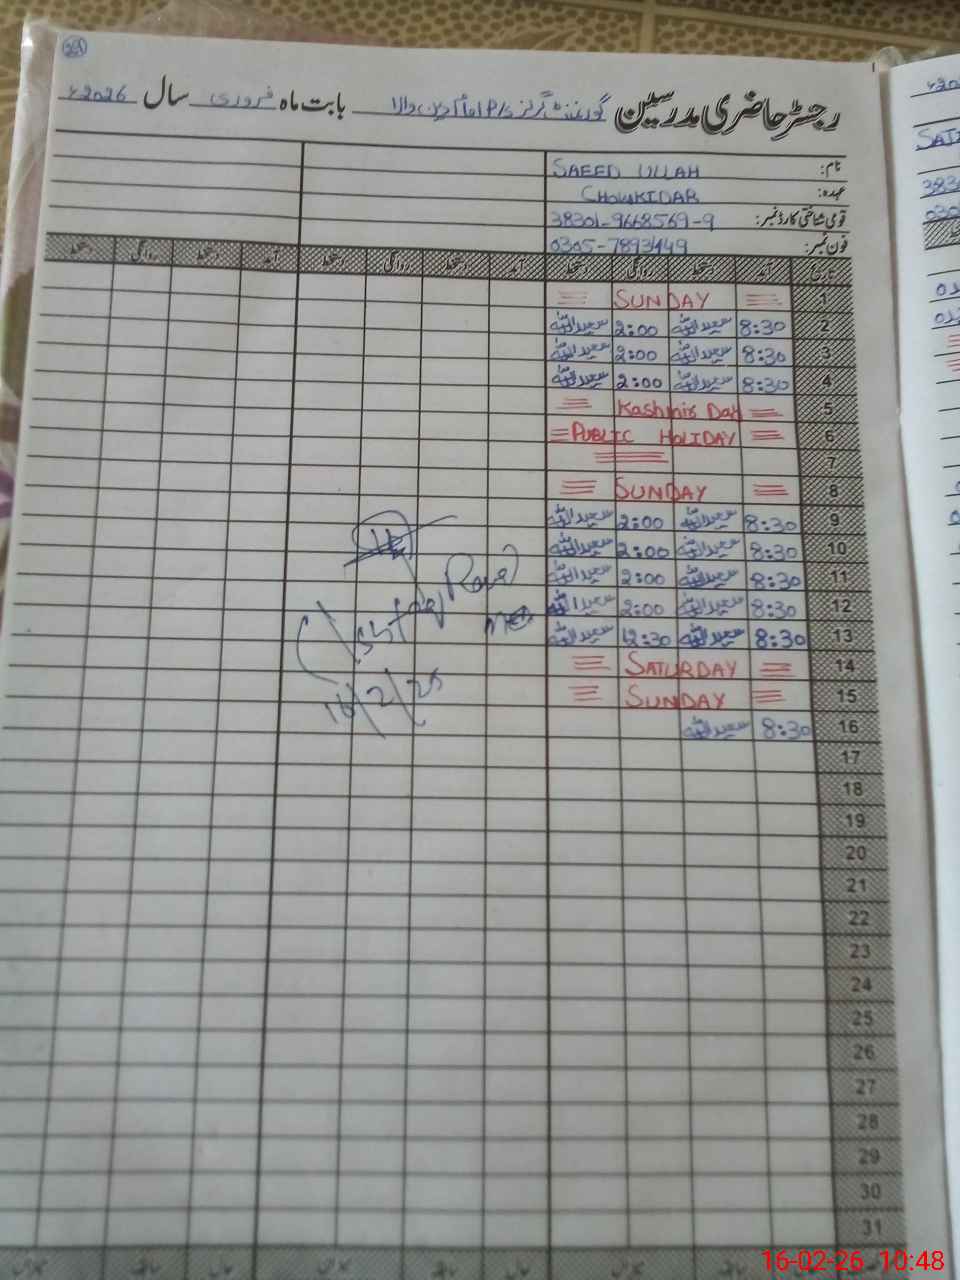 291
رجسٹر حاضری مدرسین گورنمنٹ گرلز P/S امام دین والا بابت ماہ فروری سال 2026ء
نام: SAEED ULLAH
عہدہ: CHOWKIDAR
قومی شناختی کارڈ نمبر: 38301-9668569-9
فون نمبر: 0305-7893449
تاریخ آمد دستخط روانگی دستخط آمد دستخط روانگی دستخط آمد دستخط روانگی دستخط
1 SUNDAY
2 8:30 سعید اللہ 2:00 سعید اللہ
3 8:30 سعید اللہ 2:00 سعید اللہ
4 8:30 سعید اللہ 2:00 سعید اللہ
5 Kashmir Day
6 PUBLIC HOLIDAY
7
8 SUNDAY
9 8:30 سعید اللہ 2:00 سعید اللہ
10 8:30 سعید اللہ 2:00 سعید اللہ
11 8:30 سعید اللہ 2:00 سعید اللہ
12 8:30 سعید اللہ 2:00 سعید اللہ
13 8:30 سعید اللہ 12:30 سعید اللہ
14 SATURDAY
15 SUNDAY
16 8:30 سعید اللہ
16/2/26
17
18
19
20
21
22
23
24
25
26
27
28
29
30
31
16-02-26 10:48